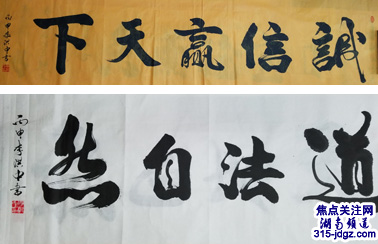 誠信赢天下
道法自然
丙申李洪中書
焦点关注网
湖南频道
315-jdgz.com